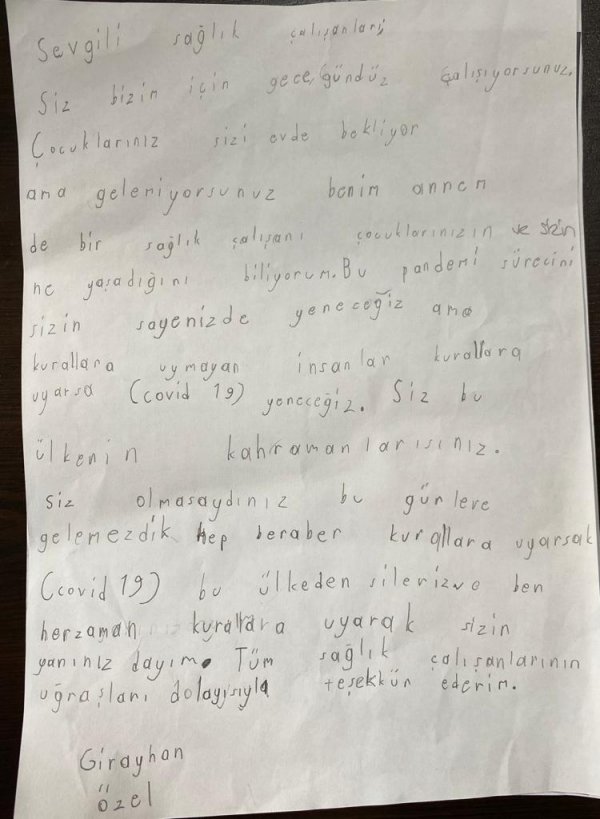 Sevgili sağlık çalışanları,
Siz bizim için gece, gündüz çalışıyorsunuz.
Çocuklarınız sizi evde bekliyor
ama gelemiyorsunuz benim annem
de bir sağlık çalışanı çocuklarınızın ve sizin
ne yaşadığını biliyorum. Bu pandemi sürecini
sizin sayenizde yeneceğiz ama
kurallara uymayan insanlar kurallara
uyarsa (covid 19) yeneceğiz. Siz bu
ülkenin kahramanlarısınız.
Siz olmasaydınız bu günleve
gelemezdik hep beraber kurallara uyarsak
(covid 19) bu ülkeden sileriz ve ben
herzaman kurallara uyarak sizin
yanınız dayım. Tüm sağlık çalışanlarının
uğraşları dolayısıyla teşekkün ederim.
Girayhan
özel